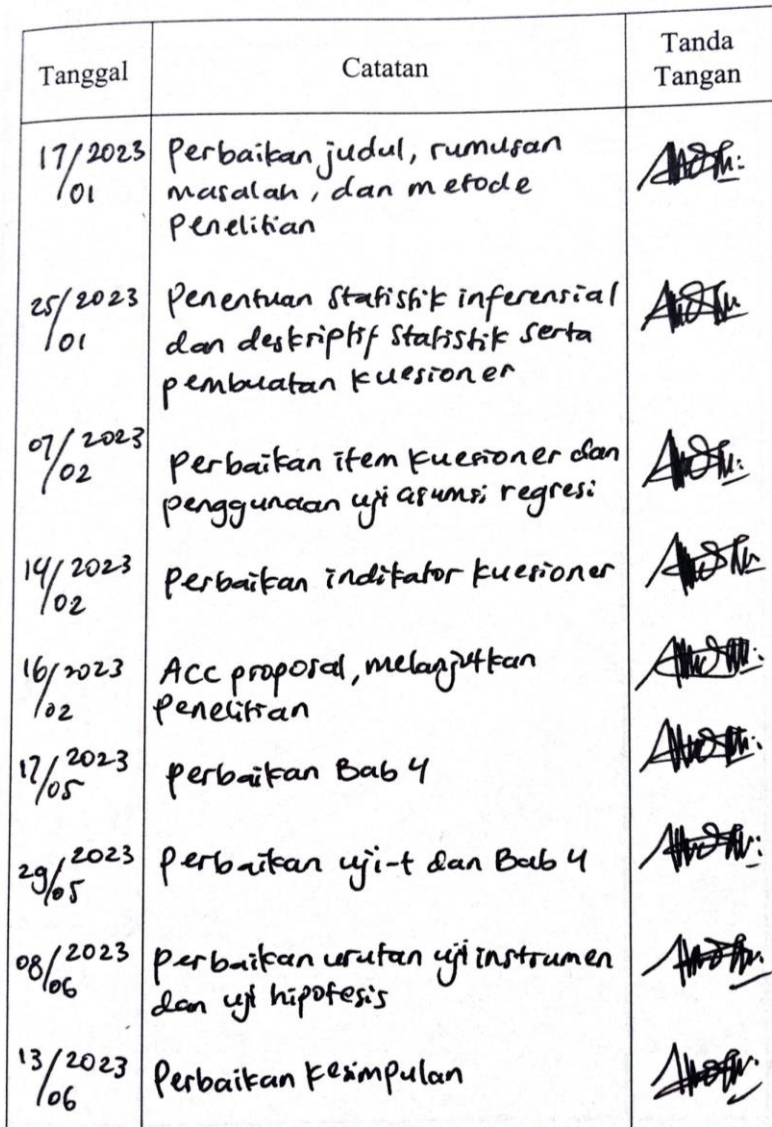 Tanggal
Catatan
Tanda
Tangan
17/2023
/01
Perbaikan judul, rumusan
masalah, dan metode
Penelitian
25/2023
/01
Penentuan Statistik inferensial
dan deskriptif Statistik serta
pembuatan kuesioner
07/2023
/02
Perbaikan item kuesioner dan
penggunaan uji asumsi regresi
14/2023
/02
Perbaikan indikator kuesioner
16/2023
/02
ACC proposal, melanjutkan
Penelitian
17/2023
/05
Perbaikan Bab 4
29/2023
/05
Perbaikan uji-t dan Bab 4
08/2023
/06
Perbaikan urutan uji instrumen
dan uji hipotesis
13/2023
/06
Perbaikan kesimpulan